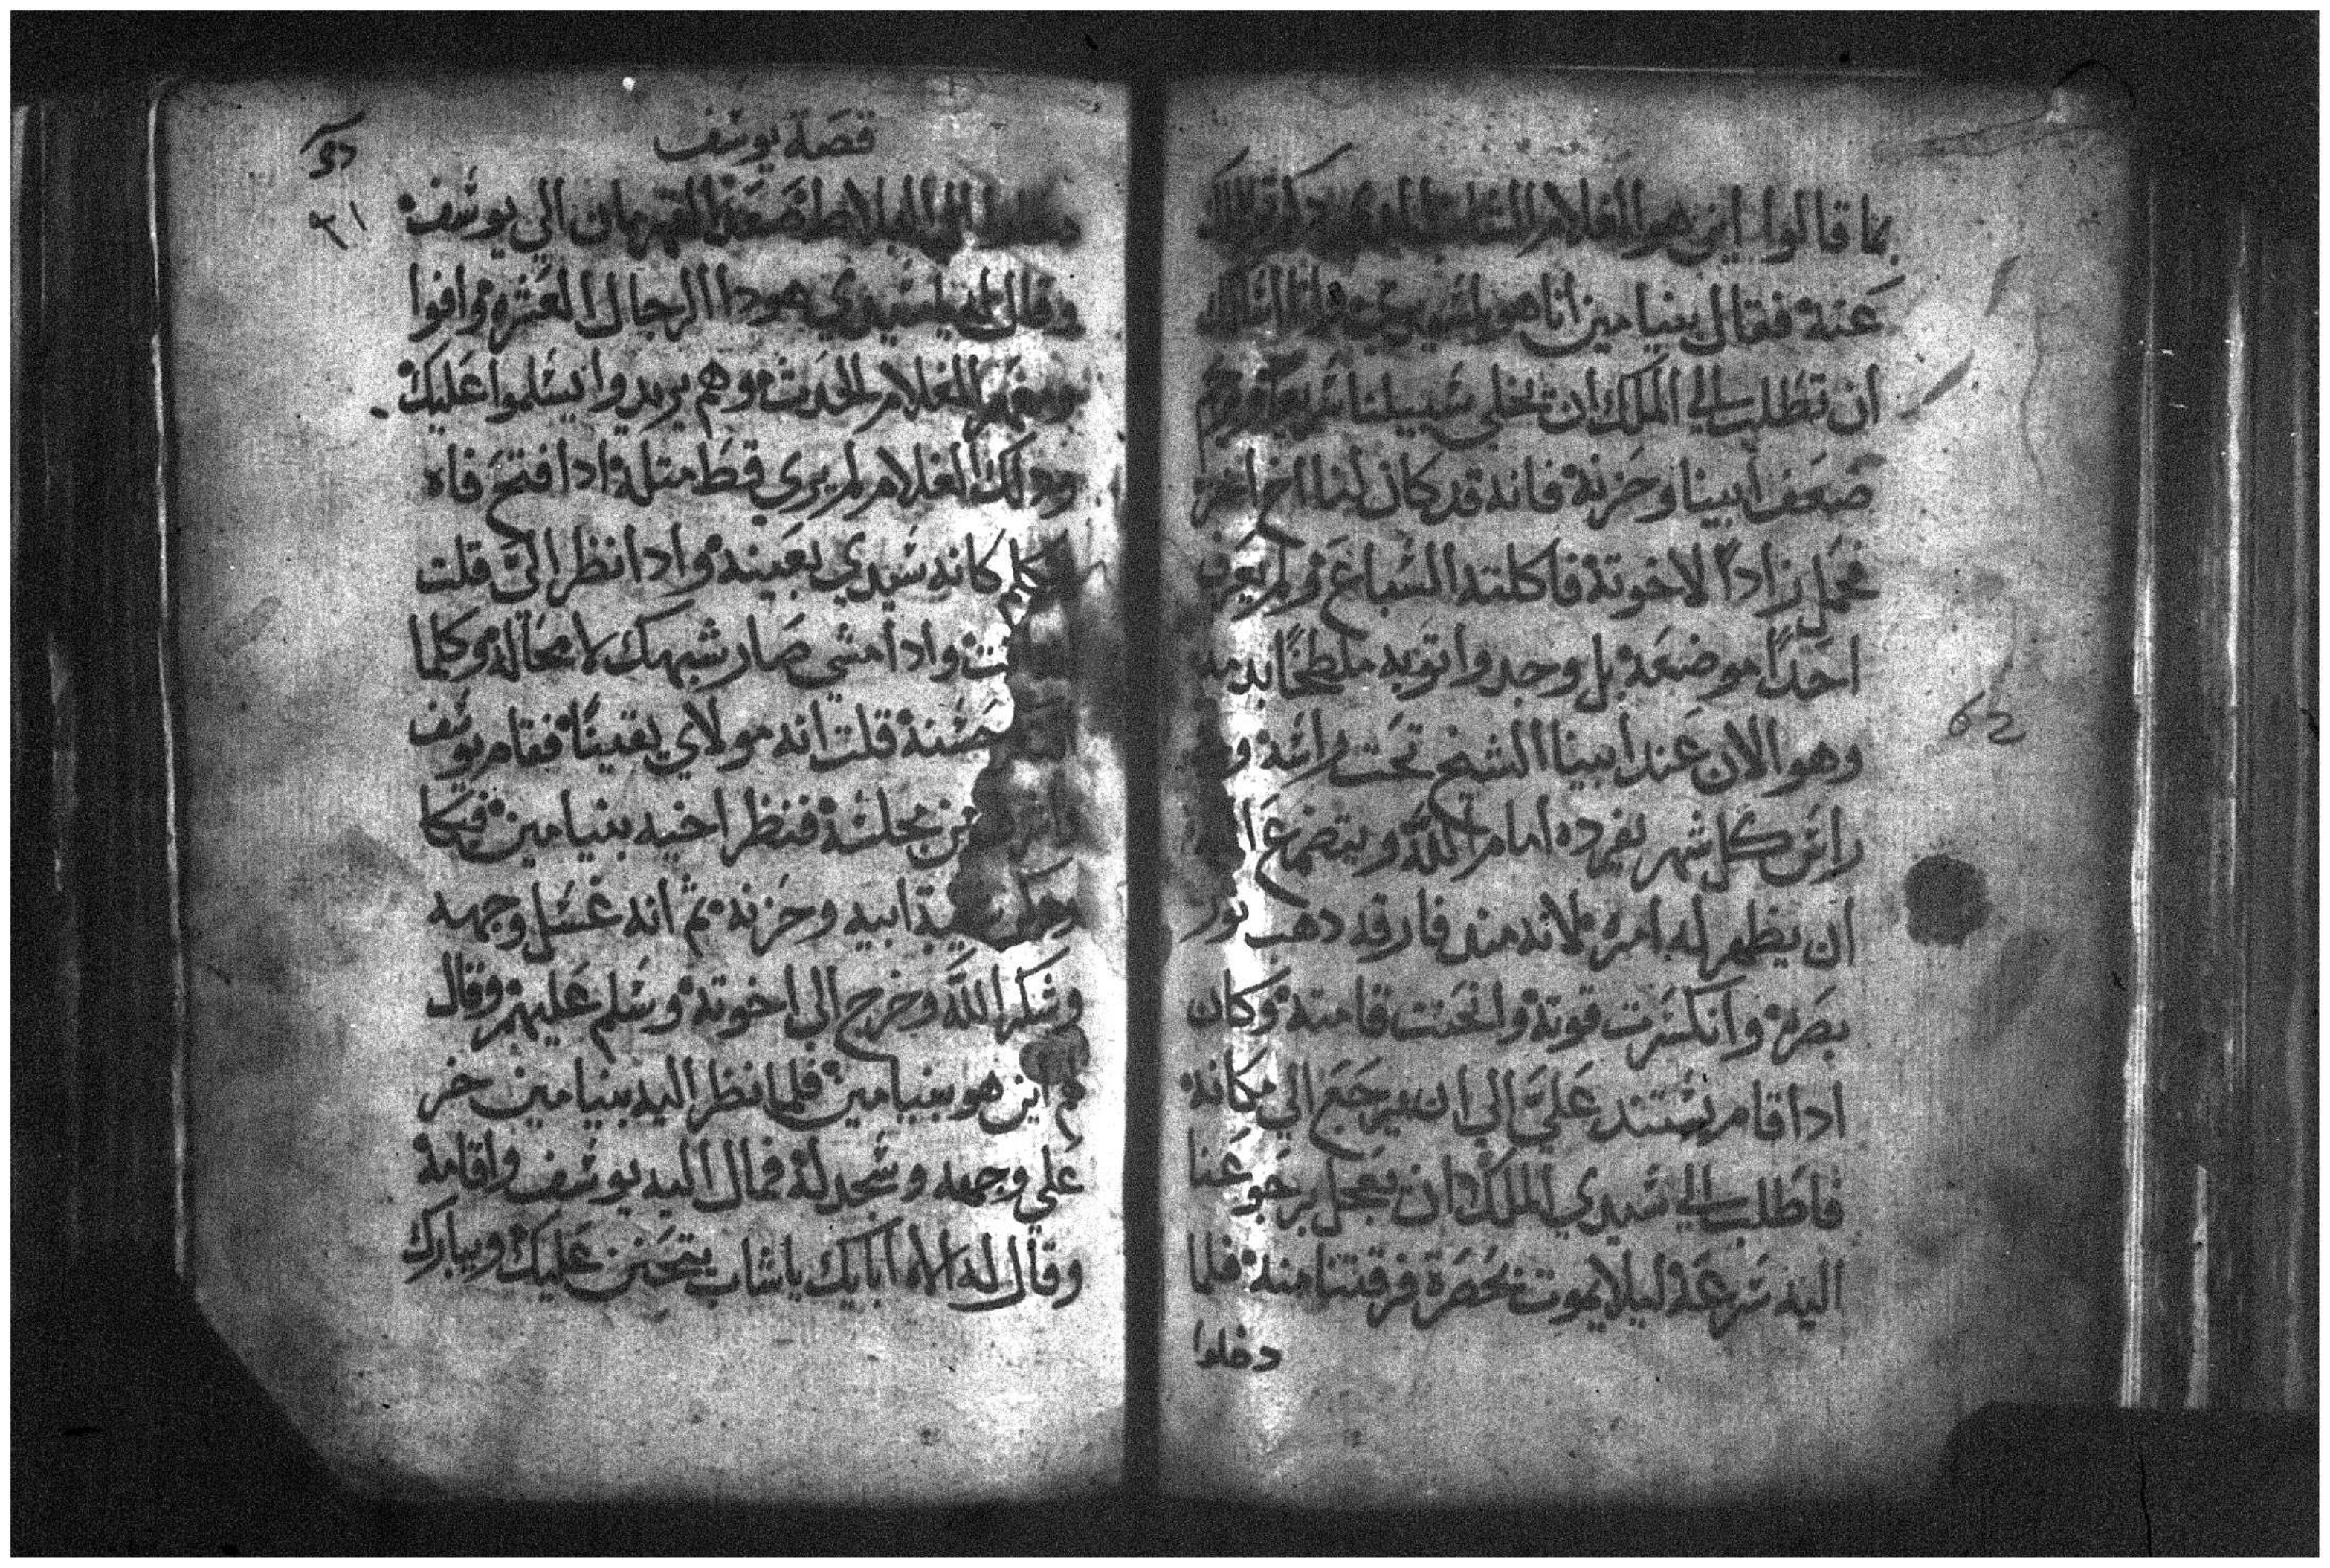 بما قالوا اين هو الغلام الشاب الدي دكرتم للملك
عنه فقال بنيامين انا هو يا سيدي وانا اسالك
ان تطلب الي الملك ان يخلي سبيلنا سريعا
صعف ابينا وحزنه فانه قد كان لنا اخ اخر
فحمل زاداً لاخوته فاكلته السباع ولم يعرف
احداً موضعه بل وجدوا توبه ملطخاً بدمه
وهو الان عند ابينا الشيخ تحت راسه
راس كل شهر يفرده امام الله ويتضرع
ان يظهر له امره لانه مند فارقه دهب نور
بصره وانكسرت قوته وانحنت قامته وكان
ادا قام يستند علي الي ان يرجع الي مكانه
فاطلب الي سيدي الملك ان يعجل برجوعنا
اليه سرعه ليلا يموت بحصرة فرقتنا منه فلما
دخلوا
62
قصة يوسف
الي البلاط صعد القهرمان الي يوسف
وقال له يا سيدي هودا الرجال العشره وافوا
ومعهم الغلام الحدت وهم يريدوا يسلموا عليك
ودلك الغلام لم يري قط متله ادا افتح فاه
كانه سيدي بعينه وادا نظر الي قلت
وادا مشي صار شبهك لا محاله وكلما
حسنه قلت انه مولاي يقيناً فقام يوسف
من مجلسه فنظر اخيه بنيامين فبكا
ابيه وحزنه تم انه غسل وجهه
وشكر الله وخرج الي اخوته وسلم عليهم وقال
لهم اين هو بنيامين فلما نظر اليه بنيامين خر
علي وجهه وسجد له فمال اليه يوسف واقامه
وقال له الاه ابايك يا شاب يتحنن عليك ويبارك